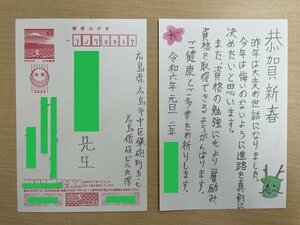 郵便はがき
63
年賀
2024
広島県広島市中区鉄砲町五ー七
広島偕成ビル九階
先生
恭賀新春
昨年は大変お世話になりました。
今年は悔いのないように進路を真剣に
決めたいと思います。
また、資格の勉強にもより一層励み、
資格を取得できるようがんばります。
ご健康とご多幸をお祈りします。
令和六年元旦